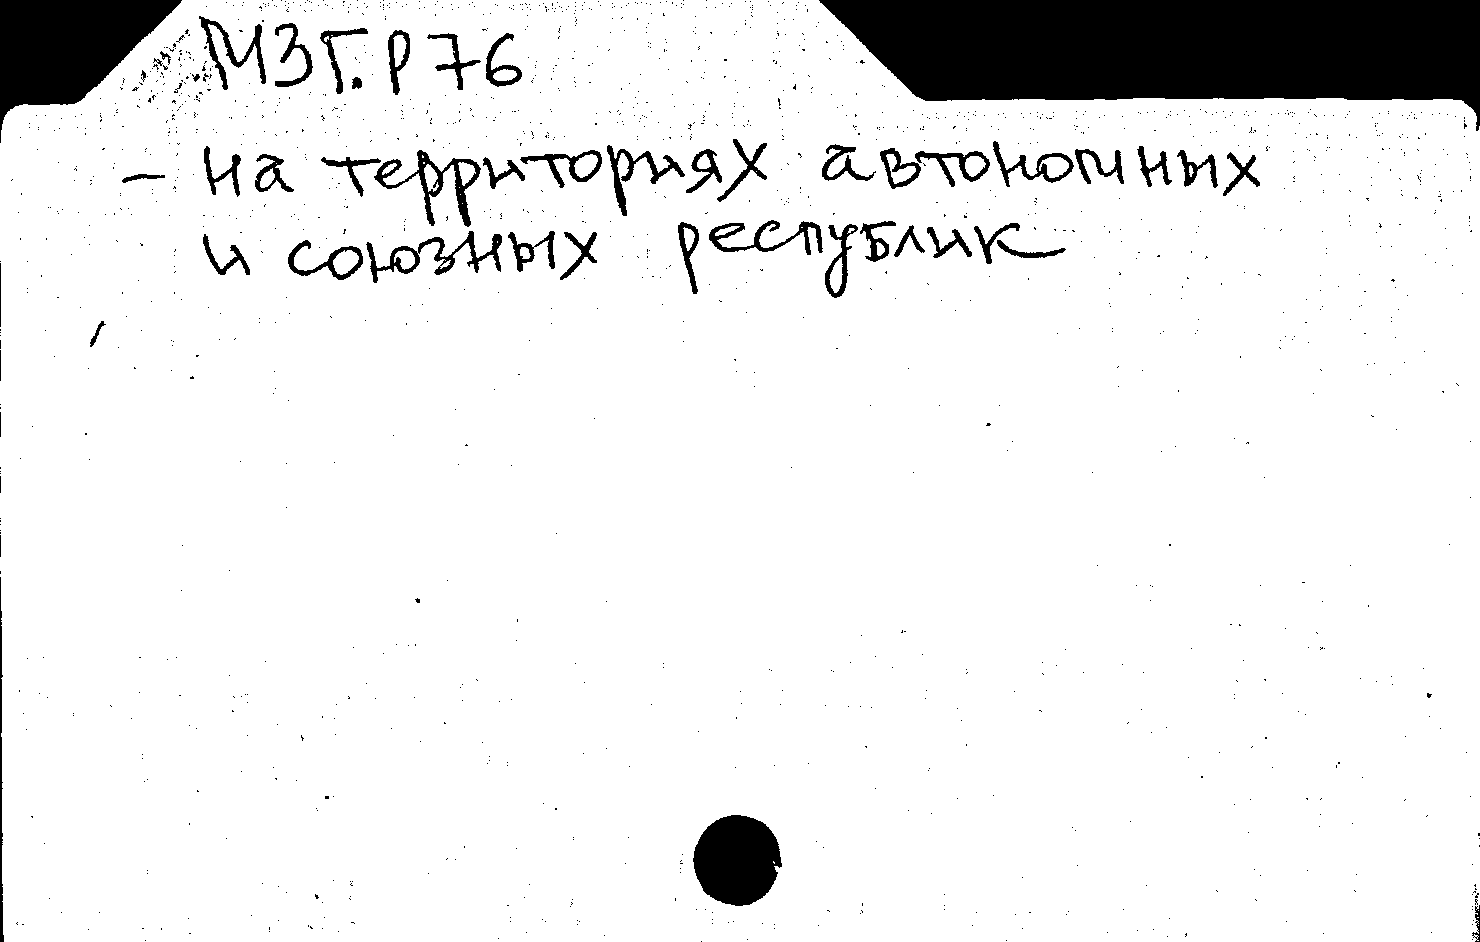 МЗГ.Р76
- на территориях автономных
и союзных республик